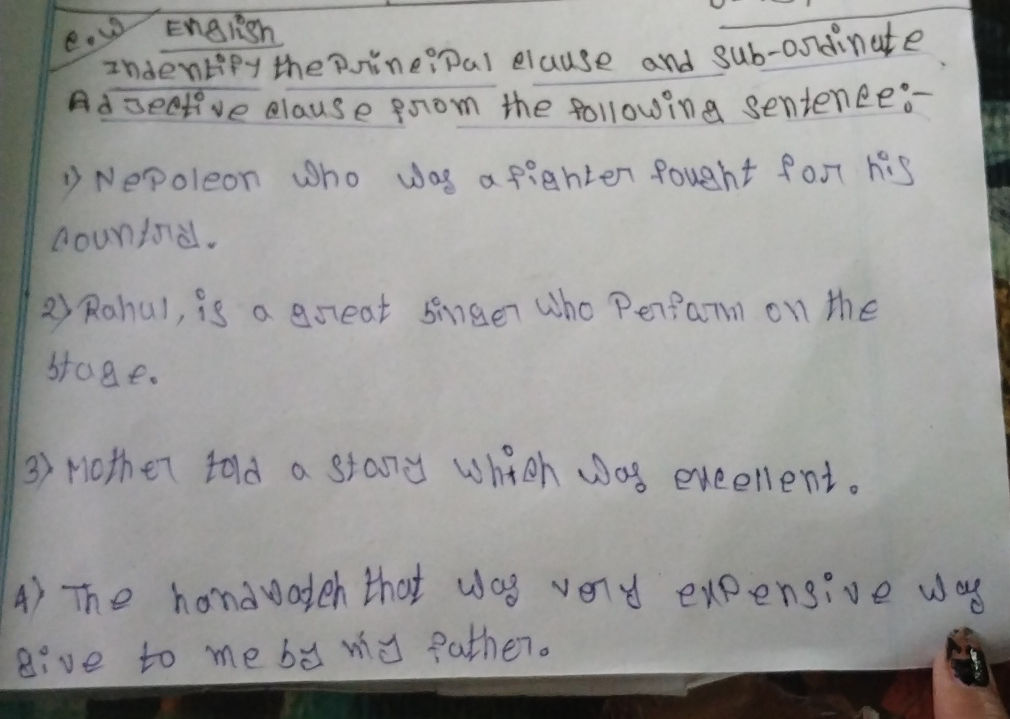 C.W English
Indentify the Principal clause and sub-ordinate
Adjective clause from the following sentence:-
1) Nepoleon who was a fighter fought for his
country.
2) Rahul, is a great singer who Perform on the
stage.
3) Mother told a story which was excellent.
4) The handwatch that was very expensive was
give to me by my father.